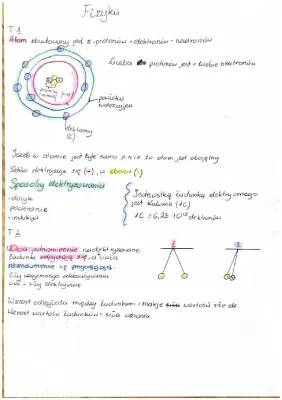 Fizyka
T.1
Atom zbudowany jest z protonów-elektronów-neutronów
Liczba protonów jest = liczbie neutronów
powłoki
elektrony
Jeżeli w atomie jest tyle samo p. n. e to atom jest obojętny
Szkło elektryzuje się (+), a ebonit (-)
Sposoby elektryzowania
-dotyk
-pocieranie
-indukcja
Jednostką ładunku elektrycznego
jest kulomb (1C)
1C = 6,25 · 10¹⁸ elektronów
T.2
Dwa jednoimiennie naelektryzowane
ładunki odpychają się, a ciała
różnoimienne się przyciągają
Siły wzajemnego oddziaływania
siły elektryczne
Wzrost odległości między ładunkami = maleje wartość siły
Wzrost wartości ładunków = siła wzrasta